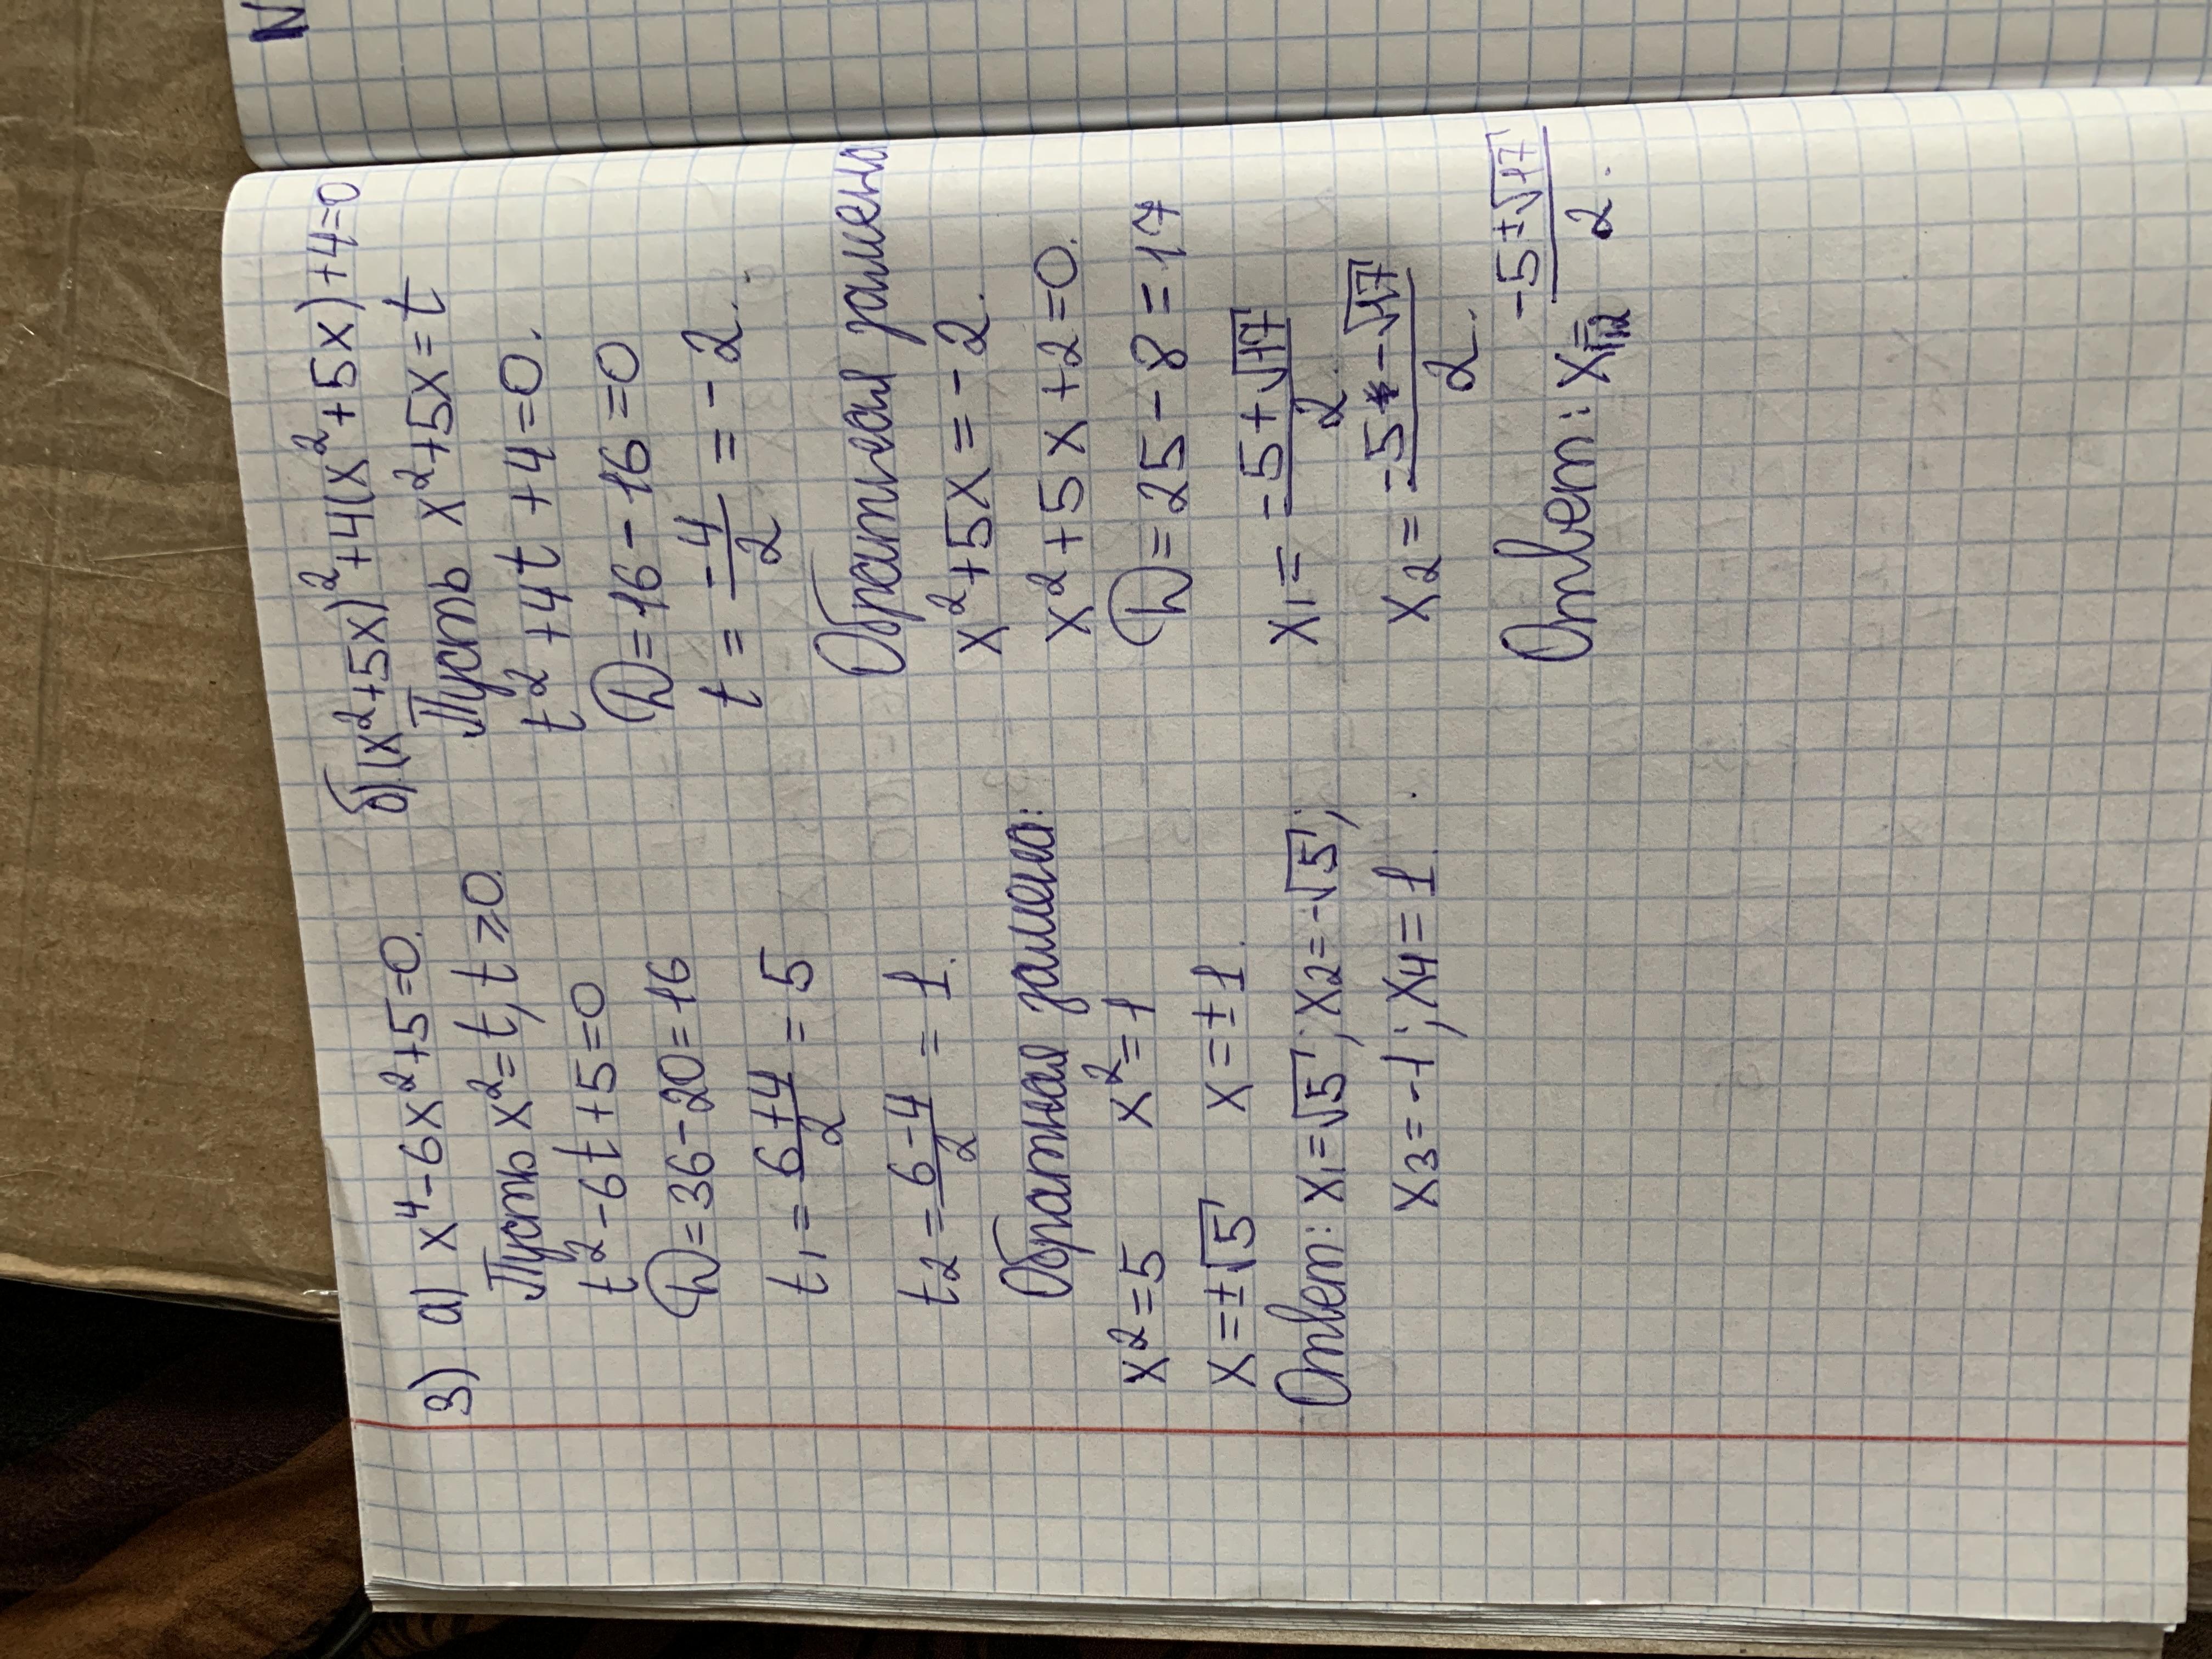 3) а) x⁴-6x²+5=0.
Пусть x²=t, t⩾0.
t²-6t+5=0
D=36-20=16
t₁=(6+4)/2=5
t₂=(6-4)/2=1.
Обратная замена:
x²=5 x²=1
x=±√5 x=±1.
Ответ: x₁=√5; x₂=-√5;
x₃=-1; x₄=1.
б) (x²+5x)²+4(x²+5x)+4=0
Пусть x²+5x=t
t²+4t+4=0.
D=16-16=0
t=-4/2=-2.
Обратная замена
x²+5x=-2.
x²+5x+2=0.
D=25-8=17
x₁=(-5+√17)/2.
x₂=(-5-√17)/2.
Ответ: x=(-5±√17)/2.